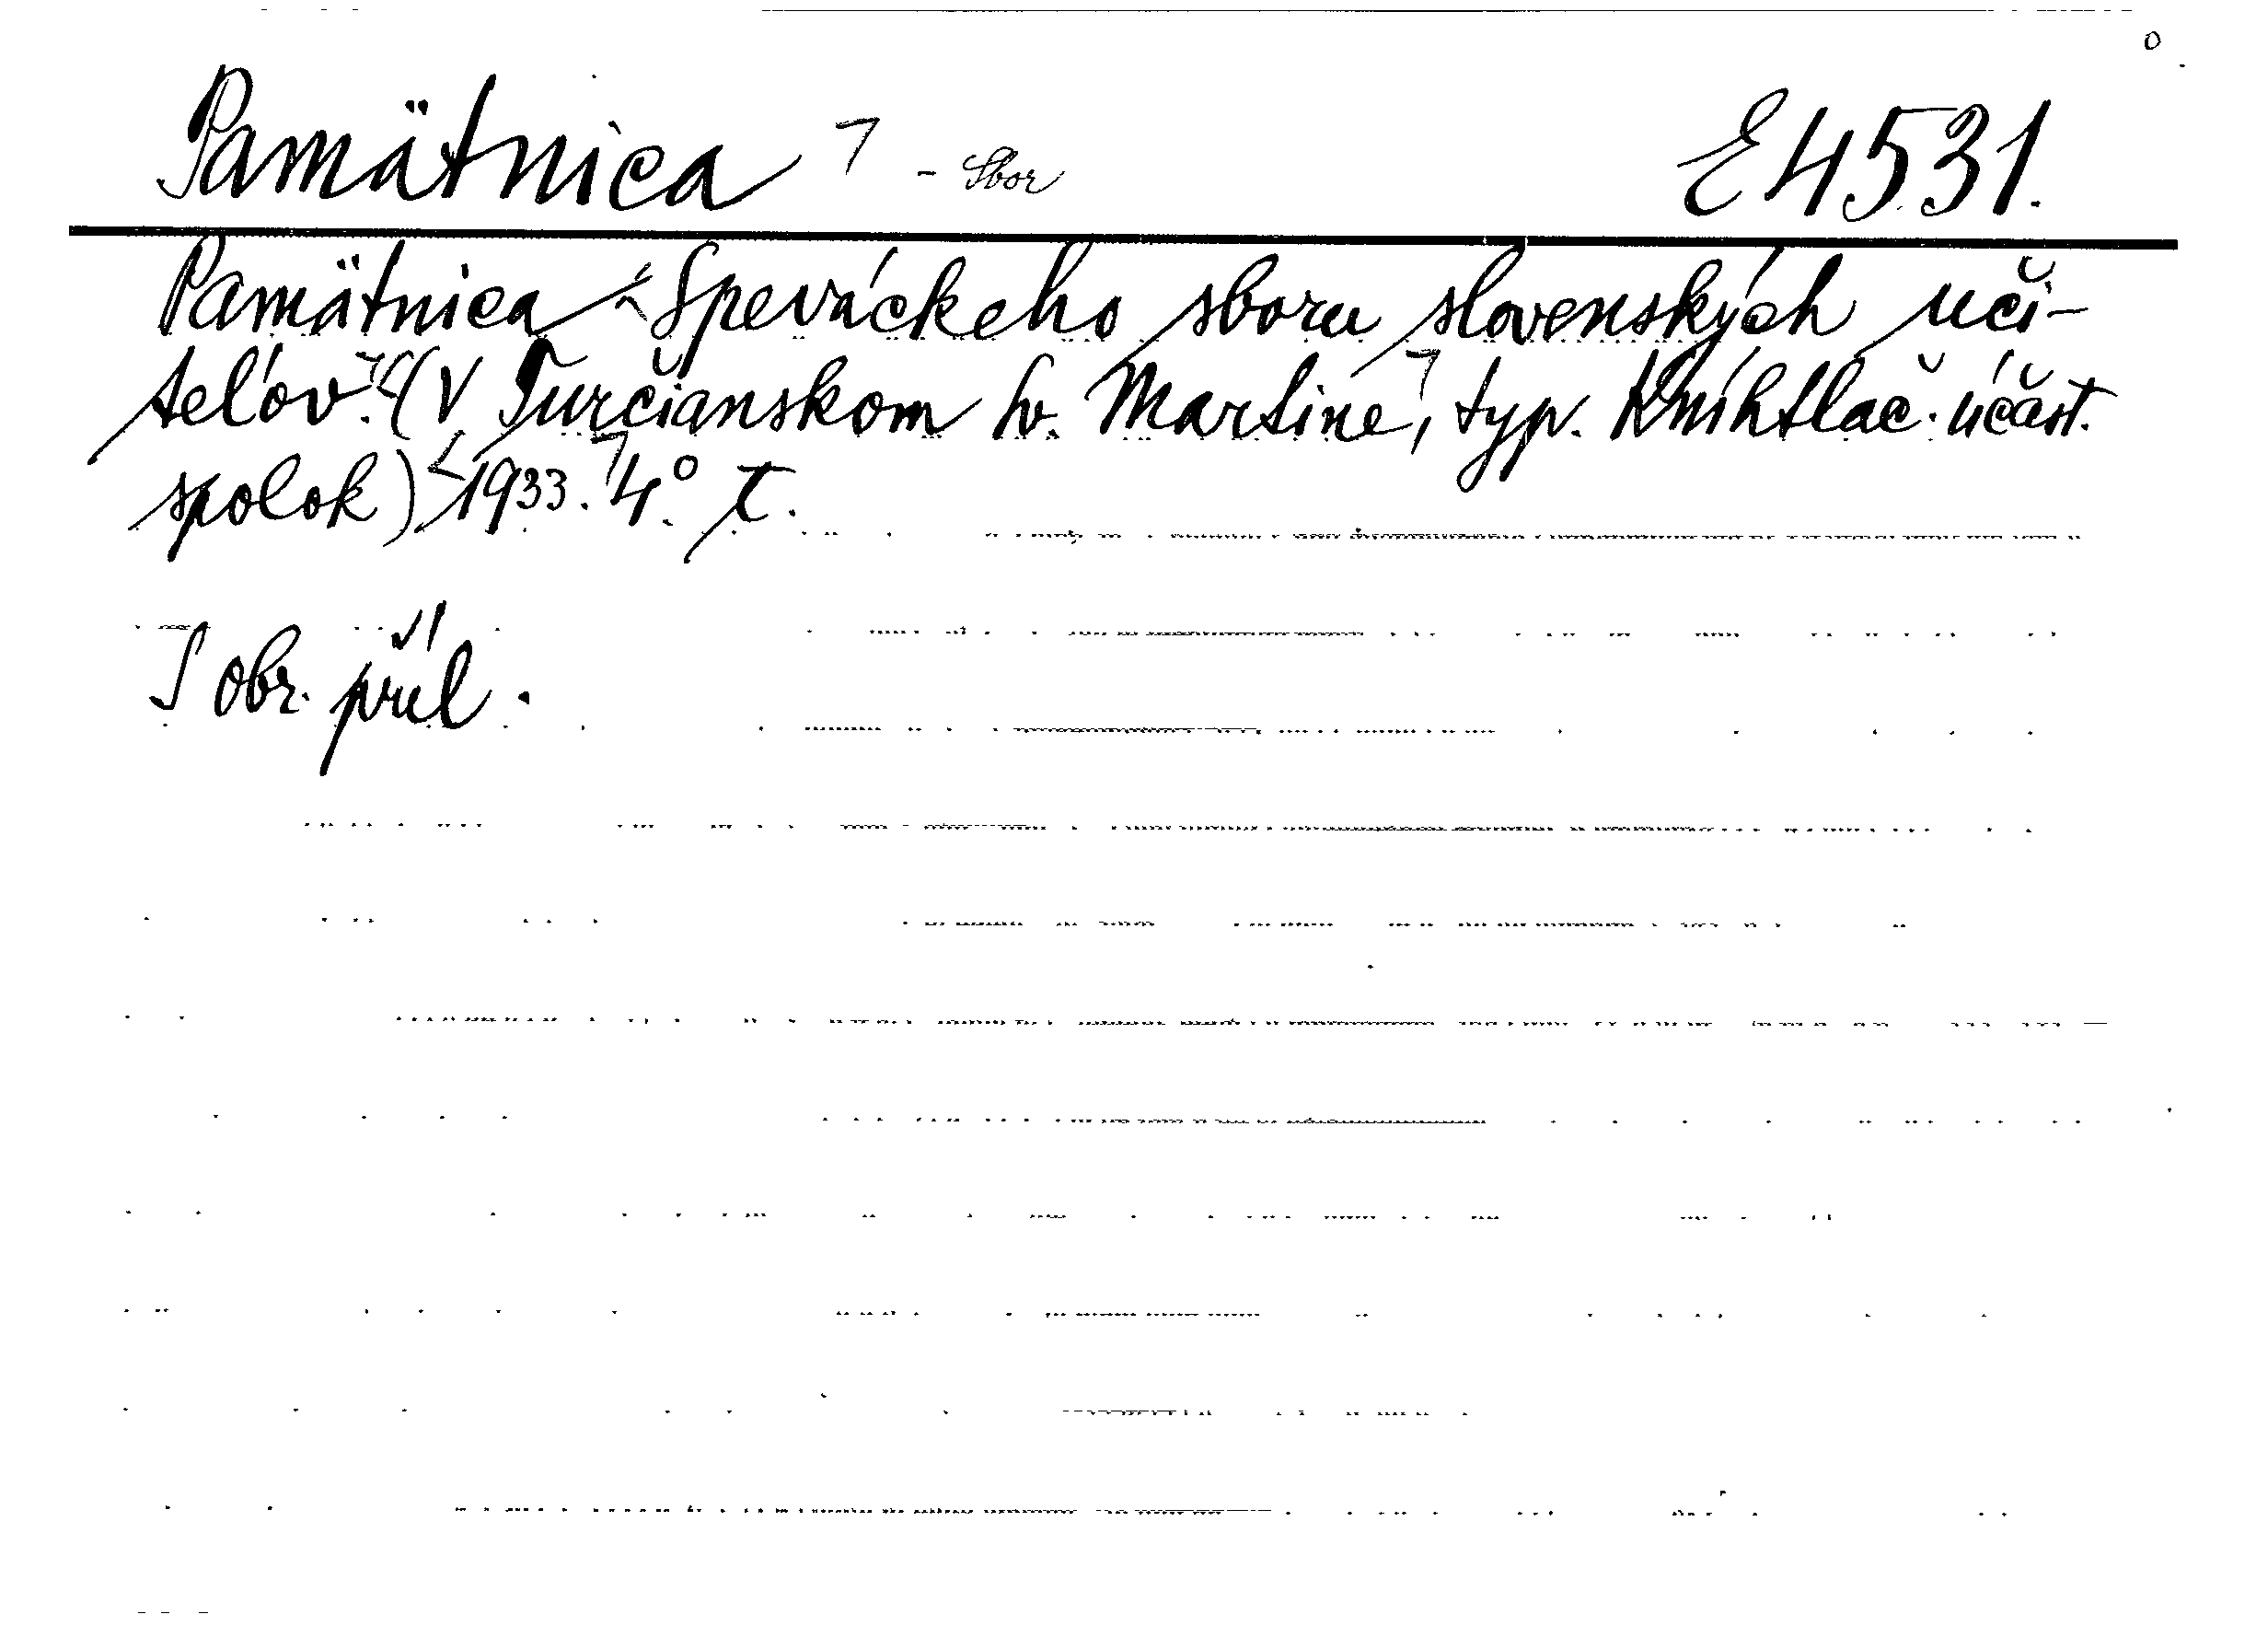 Pamätnica - Sbor E 4531.
Pamätnica Speváckeho sboru slovenských uči-
teľov. (V Turčianskom Sv. Martine, typ. Kníhtlač. účast.
spolok) 1933. 4°. T.
S obr. příl.